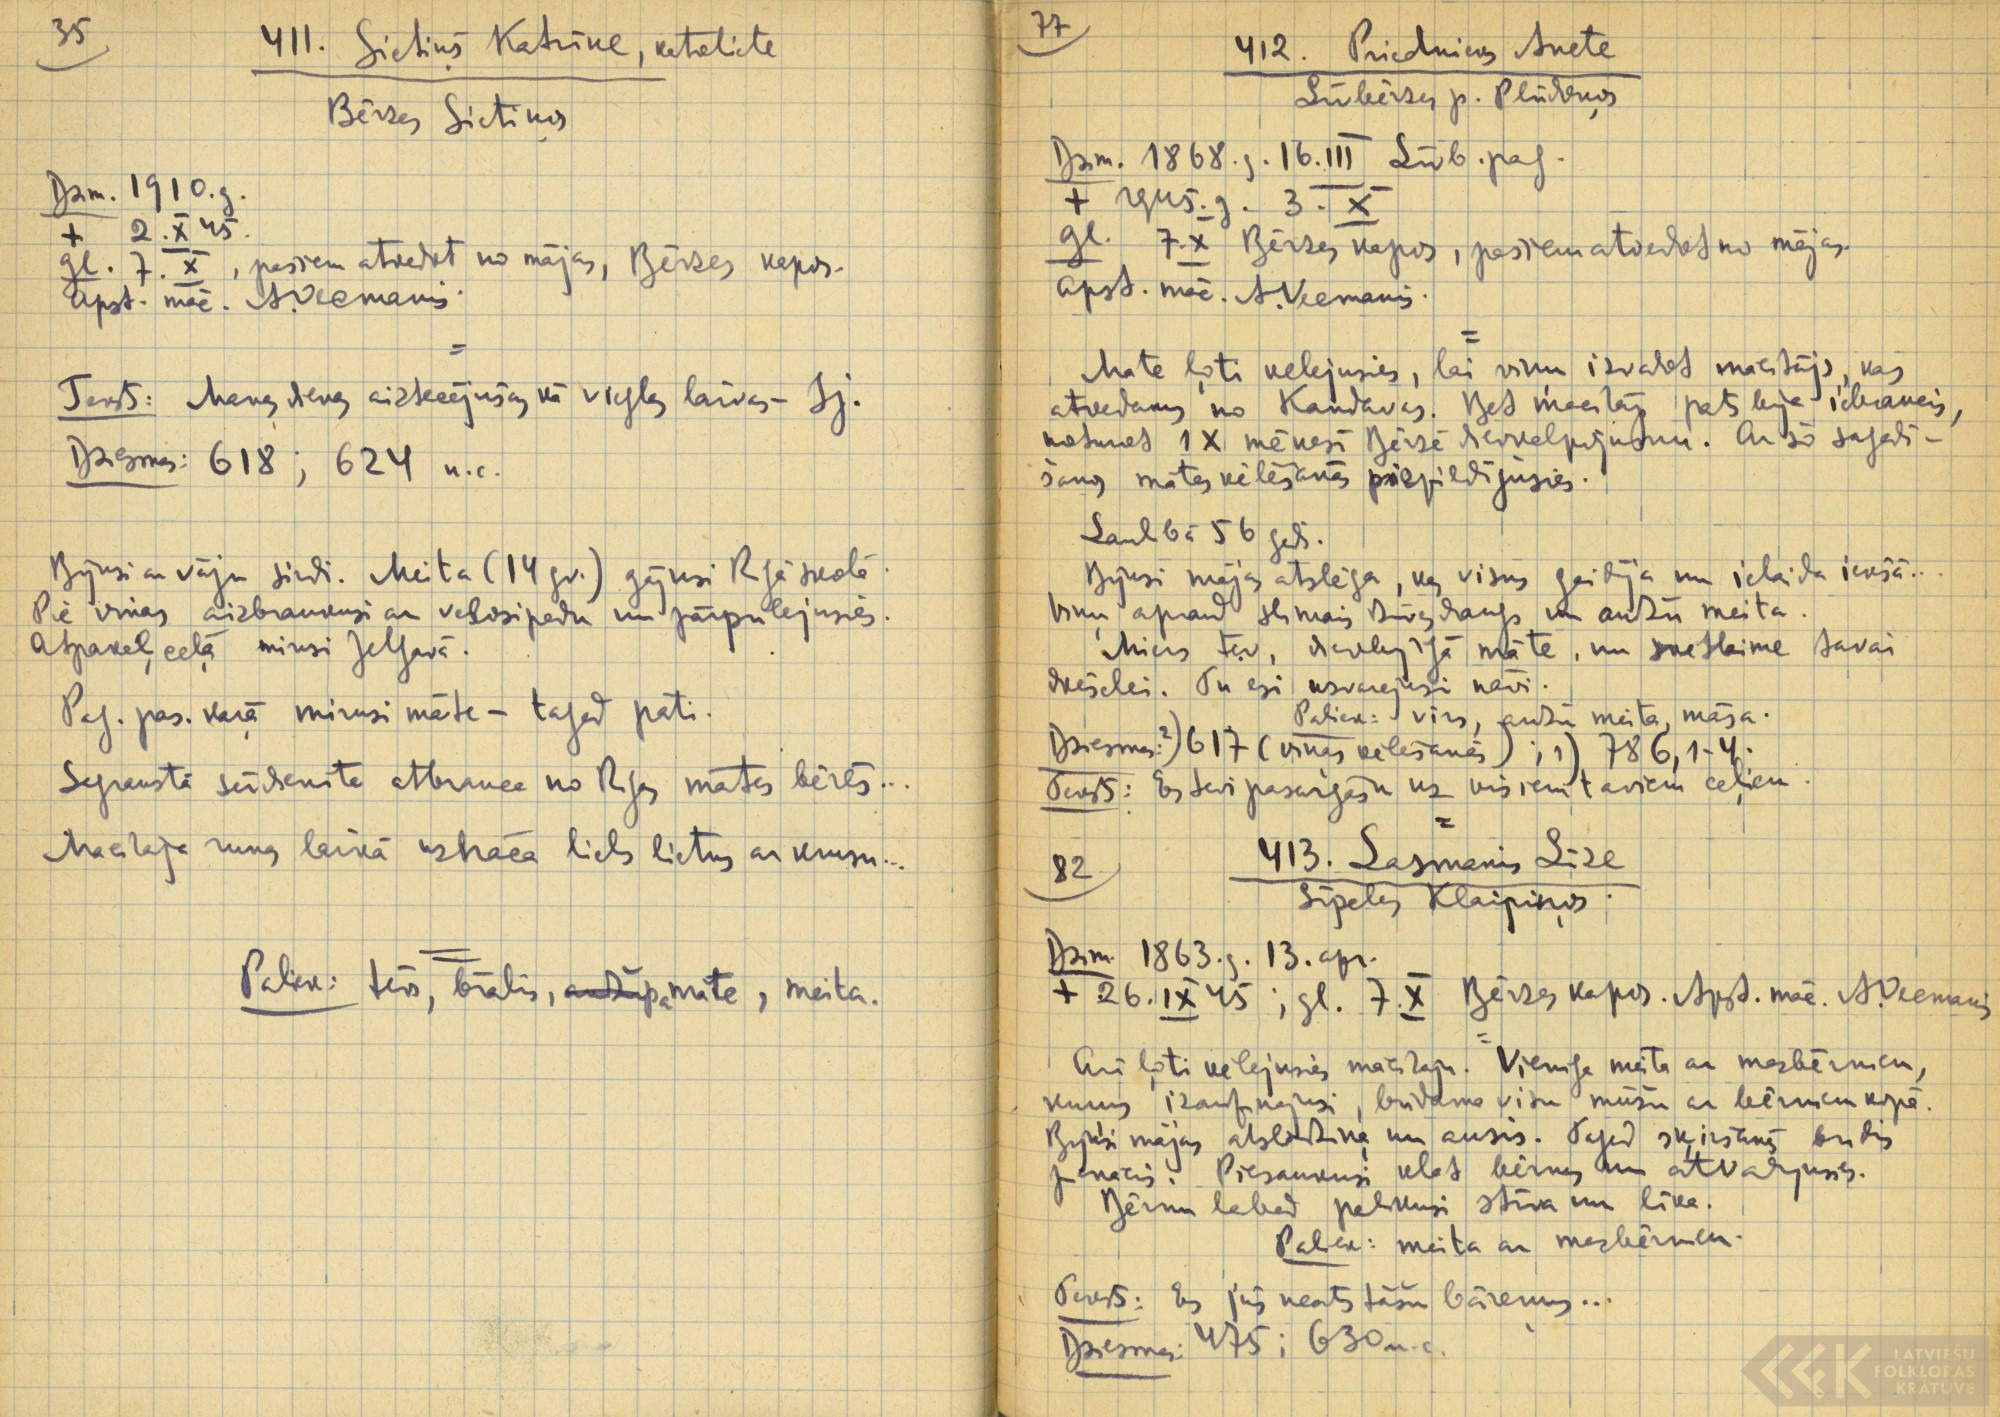 35
411. Sietiņš Katrīne, katoliete
Bērzes Sietiņos
Dzim. 1910. g.
+ 2. X 45.
gl. 7. X, pašiem atvedot no mājas, Bērzes kapos.
Apst. māc. A. Veemanis.
=
Teksts: Manas dienas aiztecējušas kā vieglas laivas – Īj.
Dziesmas: 618; 624 u.c.
Bijusi ar vāju sirdi. Meita (14 gv.) gājusi Rīgā skolā.
Pie viņas aizbraukusi ar velosipedu un pārpūlejusies.
Atpakaļ ceļā mirusi Jelgavā.
Pag. pas. karā mirusi māte – tagad pati.
Segrausta sērdienīte atbrauca no Rīgas mātes bērēs...
Mācītāja runas laikā uznāca liels lietus ar krusu...
=
Paliek: tēvs, brālis, audžupamāte, meita.
77
412. Priednieks Anete
Līvbērzes p. Plūdoņos
Dzim. 1868. g. 16. III Līvb. pag.
+ 1945. g. 3. X
gl. 7. X Bērzes kapos, pašiem atvedot no mājas.
Apst. māc. A. Veemanis.
=
Māte ļoti vēlejusies, lai viņu izvadot mācītājs, kas
atvedams no Kandavas. Bet mācītājs pats bija iebraucis,
noturot 1 X mēnesī Bērzē dievkalpojumu. Ar šo sagadī-
šanos mātes vēlēšanās piepildījusies.
Laulībā 56 gadi.
Bijusi mājas atslēga, kas visus gaidīja un ielaida iekšā...
Viņu apraud slimais dzīvesdraugs un audžu meita.
Miers Tev, dievbijīgā māte, un svētlaime tavai
dvēselei. Tu esi uzvarejusi nāvi.
Paliek: vīrs, audžu meita, māsa.
Dziesmas: 2) 617 (viņas vēlēšanās); 1) 786, 1-4.
Teksts: Es tevi pasargāšu uz visiem taviem ceļiem.
=
82
413. Lasmanis Līze
Sīpeles Klaipiņos.
Dzim. 1863. g. 13. apr.
+ 26. IX 45; gl. 7. X Bērzes kapos. Apst. māc. A. Veemanis
=
Arī ļoti vēlejusies mācītāju. Vienīgā meita ar mazbērniem,
kurus izauklejusi, būdama visu mūžu ar bērniem kopā.
Bijusi mājas atslēdziņa un ausis. Tagad šķiršanās brīdis
pienācis. Piesaukusi klāt bērnus un atvadījusies.
Bērnu labad palikusi stīva un līka.
Paliek: meita ar mazbērniem.
Teksts: Es jūs neatstāšu bāreņus...
Dziesmas: 475; 630 u.c.
LATVIEŠU
FOLKLORAS
KRĀTUVE